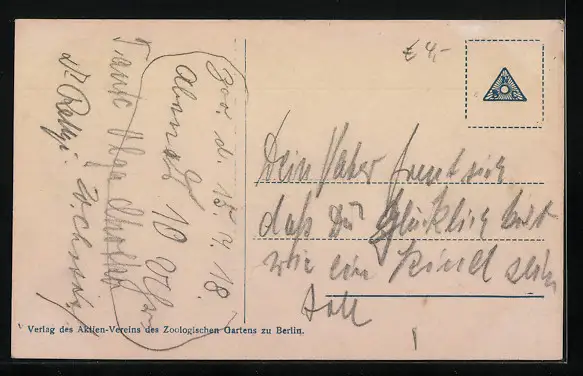 € 4,-
Zoo, d. 15.4.18.
Abends 10 Uhr
Tante Olga
Dein Vater freut sich
daß Du Glücklich bist
wie ein Kind sein
soll
Verlag des Aktien-Vereins des Zoologischen Gartens zu Berlin.